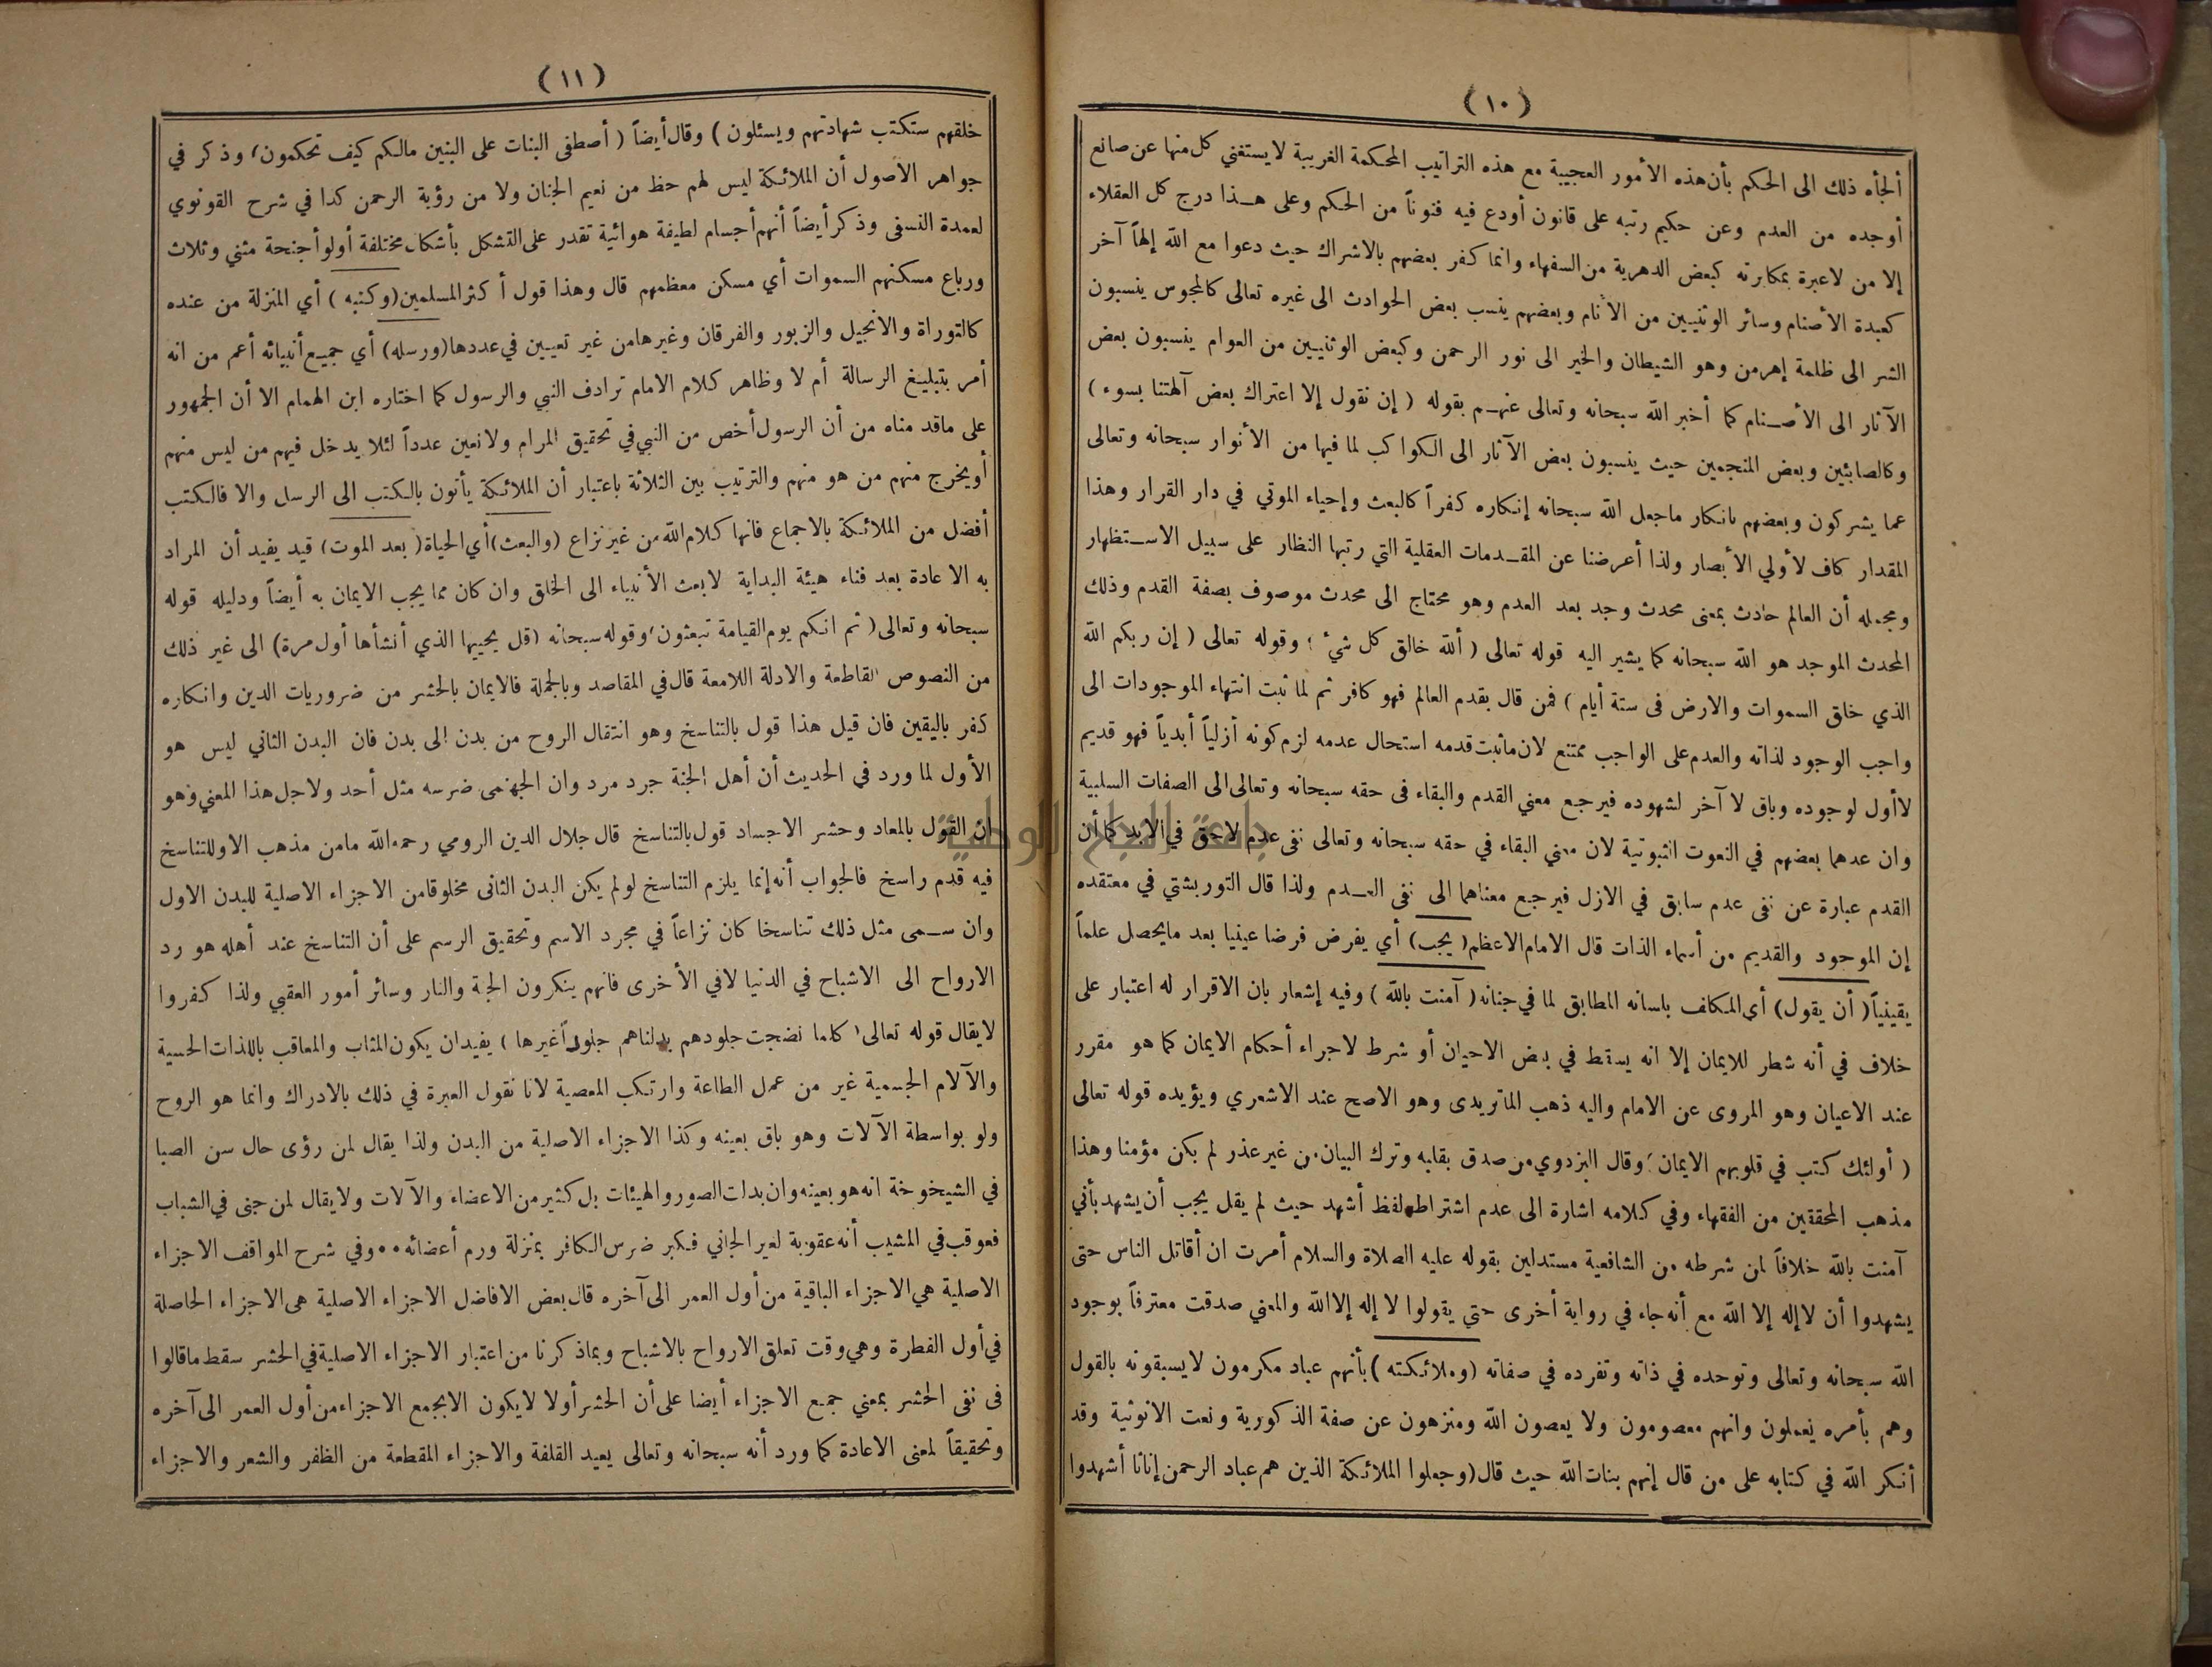 (١٠)
ألجأه ذلك الى الحكم بأن هذه الأمور العجيبة مع هذه التراتيب المحكمة الغريبة لا يستغني كل منها عن صانع
أوجده من العدم وعن حكيم رتبه على قانون أودع فيه فنوناً من الحكم وعلى هـذا درج كل العقلاء
إلا من لا عبرة بمكابرته كبعض الدهرية من السفهاء وانما كفر بعضهم بالاشراك حيث دعوا مع الله إلهاً آخر
كعبدة الأصنام وسائر الوثنيين من الأنام وبعضهم ينسب بعض الحوادث الى غيره تعالى كالمجوس ينسبون
الشر الى ظلمة إهرمن وهو الشيطان والخير الى نور الرحمن وكبعض الوثنيين من العوام ينسبون بعض
الآثار الى الأصـنام كما أخبر الله سبحانه وتعالى عنهـم بقوله ( إن نقول إلا اعتراك بعض آلهتنا بسوء )
وكالصابئين وبعض المنجمين حيث ينسبون بعض الآثار الى الكواكب لما فيها من الأنوار سبحانه وتعالى
عما يشركون وبعضهم بانكار ماجعل الله سبحانه إنكاره كفراً كالبعث وإحياء الموتي في دار القرار وهذا
المقدار كاف لأولي الأبصار ولذا أعرضنا عن المقـدمات العقلية التي رتبها النظار على سبيل الاسـتظهار
ومجمله أن العالم حادث بمعنى محدث وجد بعد العدم وهو محتاج الى محدث موصوف بصفة القدم وذلك
المحدث الموجد هو الله سبحانه كما يشير اليه قوله تعالى ( ألله خالق كل شيء ) وقوله تعالى ( إن ربكم الله
الذي خلق السموات والارض فى ستة أيام ) فمن قال بقدم العالم فهو كافر ثم لما ثبت انتهاء الموجودات الى
واجب الوجود لذاته والعدم على الواجب ممتنع لان ماثبت قدمه استحال عدمه لزم كونه أزلياً أبدياً فهو قديم
لا أول لوجوده وباق لا آخر لشهوده فيرجع معني القدم والبقاء فى حقه سبحانه وتعالى الى الصفات السلبية
وان عدهما بعضهم في النعوت الثبوتية لان معني البقاء في حقه سبحانه وتعالى نفى عدم لاحق في الابد كما أن
القدم عبارة عن نفى عدم سابق في الازل فيرجع معناهما الى نفى العـدم ولذا قال التوربشتي في معتقده
إن الموجود والقديم من أسماء الذات قال الامام الاعظم ( يجب ) أي يفرض فرضا عينيا بعد مايحصل علماً
يقينياً ( أن يقول ) أي المكلف بلسانه المطابق لما في جنانه ( آمنت بالله ) وفيه إشعار بان الاقرار له اعتبار على
خلاف في أنه شطر للايمان إلا انه يسقط في بعض الاحيان أو شرط لاجراء أحكام الايمان كما هو مقرر
عند الاعيان وهو المروى عن الامام واليه ذهب الماتريدى وهو الاصح عند الاشعري ويؤيده قوله تعالى
( أولئك كتب في قلوبهم الايمان ) وقال البزدوي من صدق بقلبه وترك البيان من غير عذر لم يكن مؤمنا وهذا
مذهب المحققين من الفقهاء وفي كلامه اشارة الى عدم اشتراط لفظ أشهد حيث لم يقل يجب أن يشهد بأني
آمنت بالله خلافاً لمن شرطه من الشافعية مستدلين بقوله عليه الصلاة والسلام أمرت ان أقاتل الناس حتى
يشهدوا أن لا إله إلا الله مع أنه جاء في رواية أخرى حتي يقولوا لا إله إلا الله والمعني صدقت معترفاً بوجود
الله سبحانه وتعالى وتوحده في ذاته وتفرده في صفاته ( وملائكته ) بأنهم عباد مكرمون لا يسبقونه بالقول
وهم بأمره يعملون وانهم معصومون ولا يعصون الله ومنزهون عن صفة الذكورية ونعت الانوثية وقد
أنكر الله في كتابه على من قال إنهم بنات الله حيث قال ( وجعلوا الملائكة الذين هم عباد الرحمن إناثا أشهدوا
(١١)
خلقهم ستكتب شهادتهم ويسئلون ) وقال أيضاً ( أصطفى البنات على البنين مالكم كيف تحكمون ) وذكر في
جواهر الأصول أن الملائكة ليس لهم حظ من نعيم الجنان ولا من رؤية الرحمن كدا في شرح القونوي
لعمدة النسفى وذكر أيضاً أنهم أجسام لطيفة هوائية تقدر على التشكل بأشكال مختلفة أولو أجنحة مثني وثلاث
ورباع مسكنهم السموات أي مسكن معظمهم قال وهذا قول أكثر المسلمين ( وكتبه ) أي المنزلة من عنده
كالتوراة والانجيل والزبور والفرقان وغيرها من غير تعيين في عددها ( ورسله ) أي جميع أنبيائه أعم من انه
أمر بتبليغ الرسالة أم لا وظاهر كلام الامام ترادف النبي والرسول كما اختاره ابن الهمام الا أن الجمهور
على ماقد مناه من أن الرسول أخص من النبي في تحقيق المرام ولا نعين عدداً لئلا يدخل فيهم من ليس منهم
أو يخرج منهم من هو منهم والترتيب بين الثلاثة باعتبار أن الملائكة يأتون بالكتب الى الرسل والا فالكتب
أفضل من الملائكة بالاجماع فانها كلام الله من غير نزاع ( والبعث ) أي الحياة ( بعد الموت ) قيد يفيد أن المراد
به الاعادة بعد فناء هيئة البداية لا بعث الأنبياء الى الخلق وان كان مما يجب الايمان به أيضاً ودليله قوله
سبحانه وتعالى ( ثم انكم يوم القيامة تبعثون ) وقوله سبحانه ( قل يحييها الذي أنشأها أول مرة ) الى غير ذلك
من النصوص القاطعة والادلة اللامعة قال في المقاصد وبالجملة فالايمان بالحشر من ضروريات الدين وانكاره
كفر باليقين فان قيل هذا قول بالتناسخ وهو انتقال الروح من بدن الى بدن فان البدن الثاني ليس هو
الأول لما ورد في الحديث أن أهل الجنة جرد مرد وان الجهنمى ضرسه مثل أحد ولاجل هذا المعني وهو
ان القول بالمعاد وحشر الاجساد قول بالتناسخ قال جلال الدين الرومي رحمه الله مامن مذهب الا وللتناسخ
فيه قدم راسخ فالجواب أنه إنما يلزم التناسخ لو لم يكن البدن الثانى مخلوقا من الاجزاء الاصلية للبدن الاول
وان سـمى مثل ذلك تناسخا كان نزاعاً في مجرد الاسم وتحقيق الرسم على أن التناسخ عند أهله هو رد
الارواح الى الاشباح في الدنيا لا في الأخرى فانهم ينكرون الجنة والنار وسائر أمور العقبي ولذا كفروا
لا يقال قوله تعالى ( كلما نضجت جلودهم بدلناهم جلوداً غيرها ) يفيد ان يكون المثاب والمعاقب باللذات الحسية
والآلام الجسمية غير من عمل الطاعة وارتكب المعصية لانا نقول العبرة في ذلك بالادراك وانما هو الروح
ولو بواسطة الآلات وهو باق بعينه وكذا الاجزاء الاصلية من البدن ولذا يقال لمن رؤى حال سن الصبا
في الشيخوخة انه هو بعينه وان بدلت الصور والهيئات بل كثير من الاعضاء والآلات ولا يقال لمن جنى في الشباب
فعوقب في المشيب أنه عقوبة لغير الجاني فكبر ضرس الكافر بمنزلة ورم أعضائه •• وفي شرح المواقف الاجزاء
الاصلية هي الاجزاء الباقية من أول العمر الى آخره قال بعض الافاضل الاجزاء الاصلية هى الاجزاء الحاصلة
في أول الفطرة وهي وقت تعلق الارواح بالاشباح وبماذكرنا من اعتبار الاجزاء الاصلية في الحشر سقط ماقالوا
فى نفى الحشر بمعني جمع الاجزاء أيضا على أن الحشر أولا لا يكون الا بجمع الاجزاء من أول العمر الى آخره
وتحقيقاً لمعنى الاعادة كما ورد أنه سبحانه وتعالى يعيد القلفة والاجزاء المقطعة من الظفر والشعر والاجزاء
جامعة النجاح الوطنية